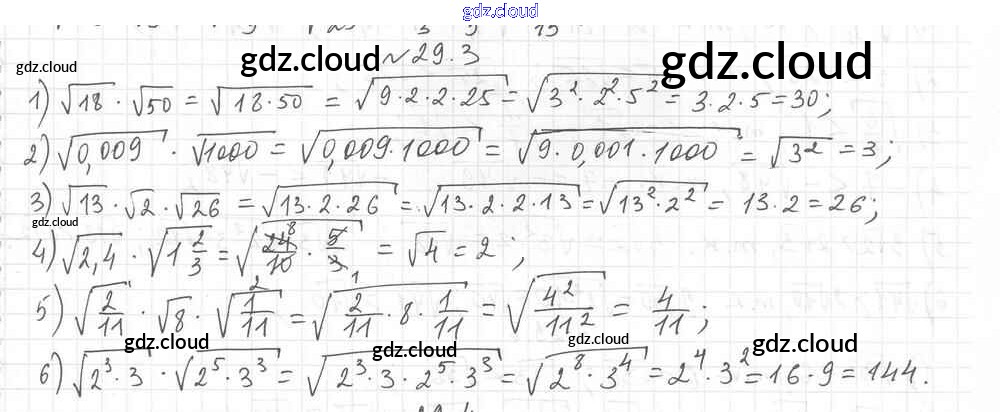 gdz.cloud
№ 29.3
gdz.cloud gdz.cloud gdz.cloud
1) √18 · √50 = √(18·50) = √(9·2·2·25) = √(3²·2²·5²) = 3·2·5 = 30;
2) √0,009 · √1000 = √(0,009·1000) = √(9·0,001·1000) = √3² = 3;
3) √13 · √2 · √26 = √(13·2·26) = √(13·2·2·13) = √(13²·2²) = 13·2 = 26;
gdz.cloud
4) √2,4 · √(1 2/3) = √(24/10 · 5/3) = √4 = 2;
5) √(2/11) · √8 · √(1/11) = √(2/11 · 8 · 1/11) = √(4²/11²) = 4/11;
gdz.cloud gdz.cloud gdz.cloud gdz.cloud
6) √(2³·3) · √(2⁵·3³) = √(2³·3·2⁵·3³) = √(2⁸·3⁴) = 2⁴·3² = 16·9 = 144.